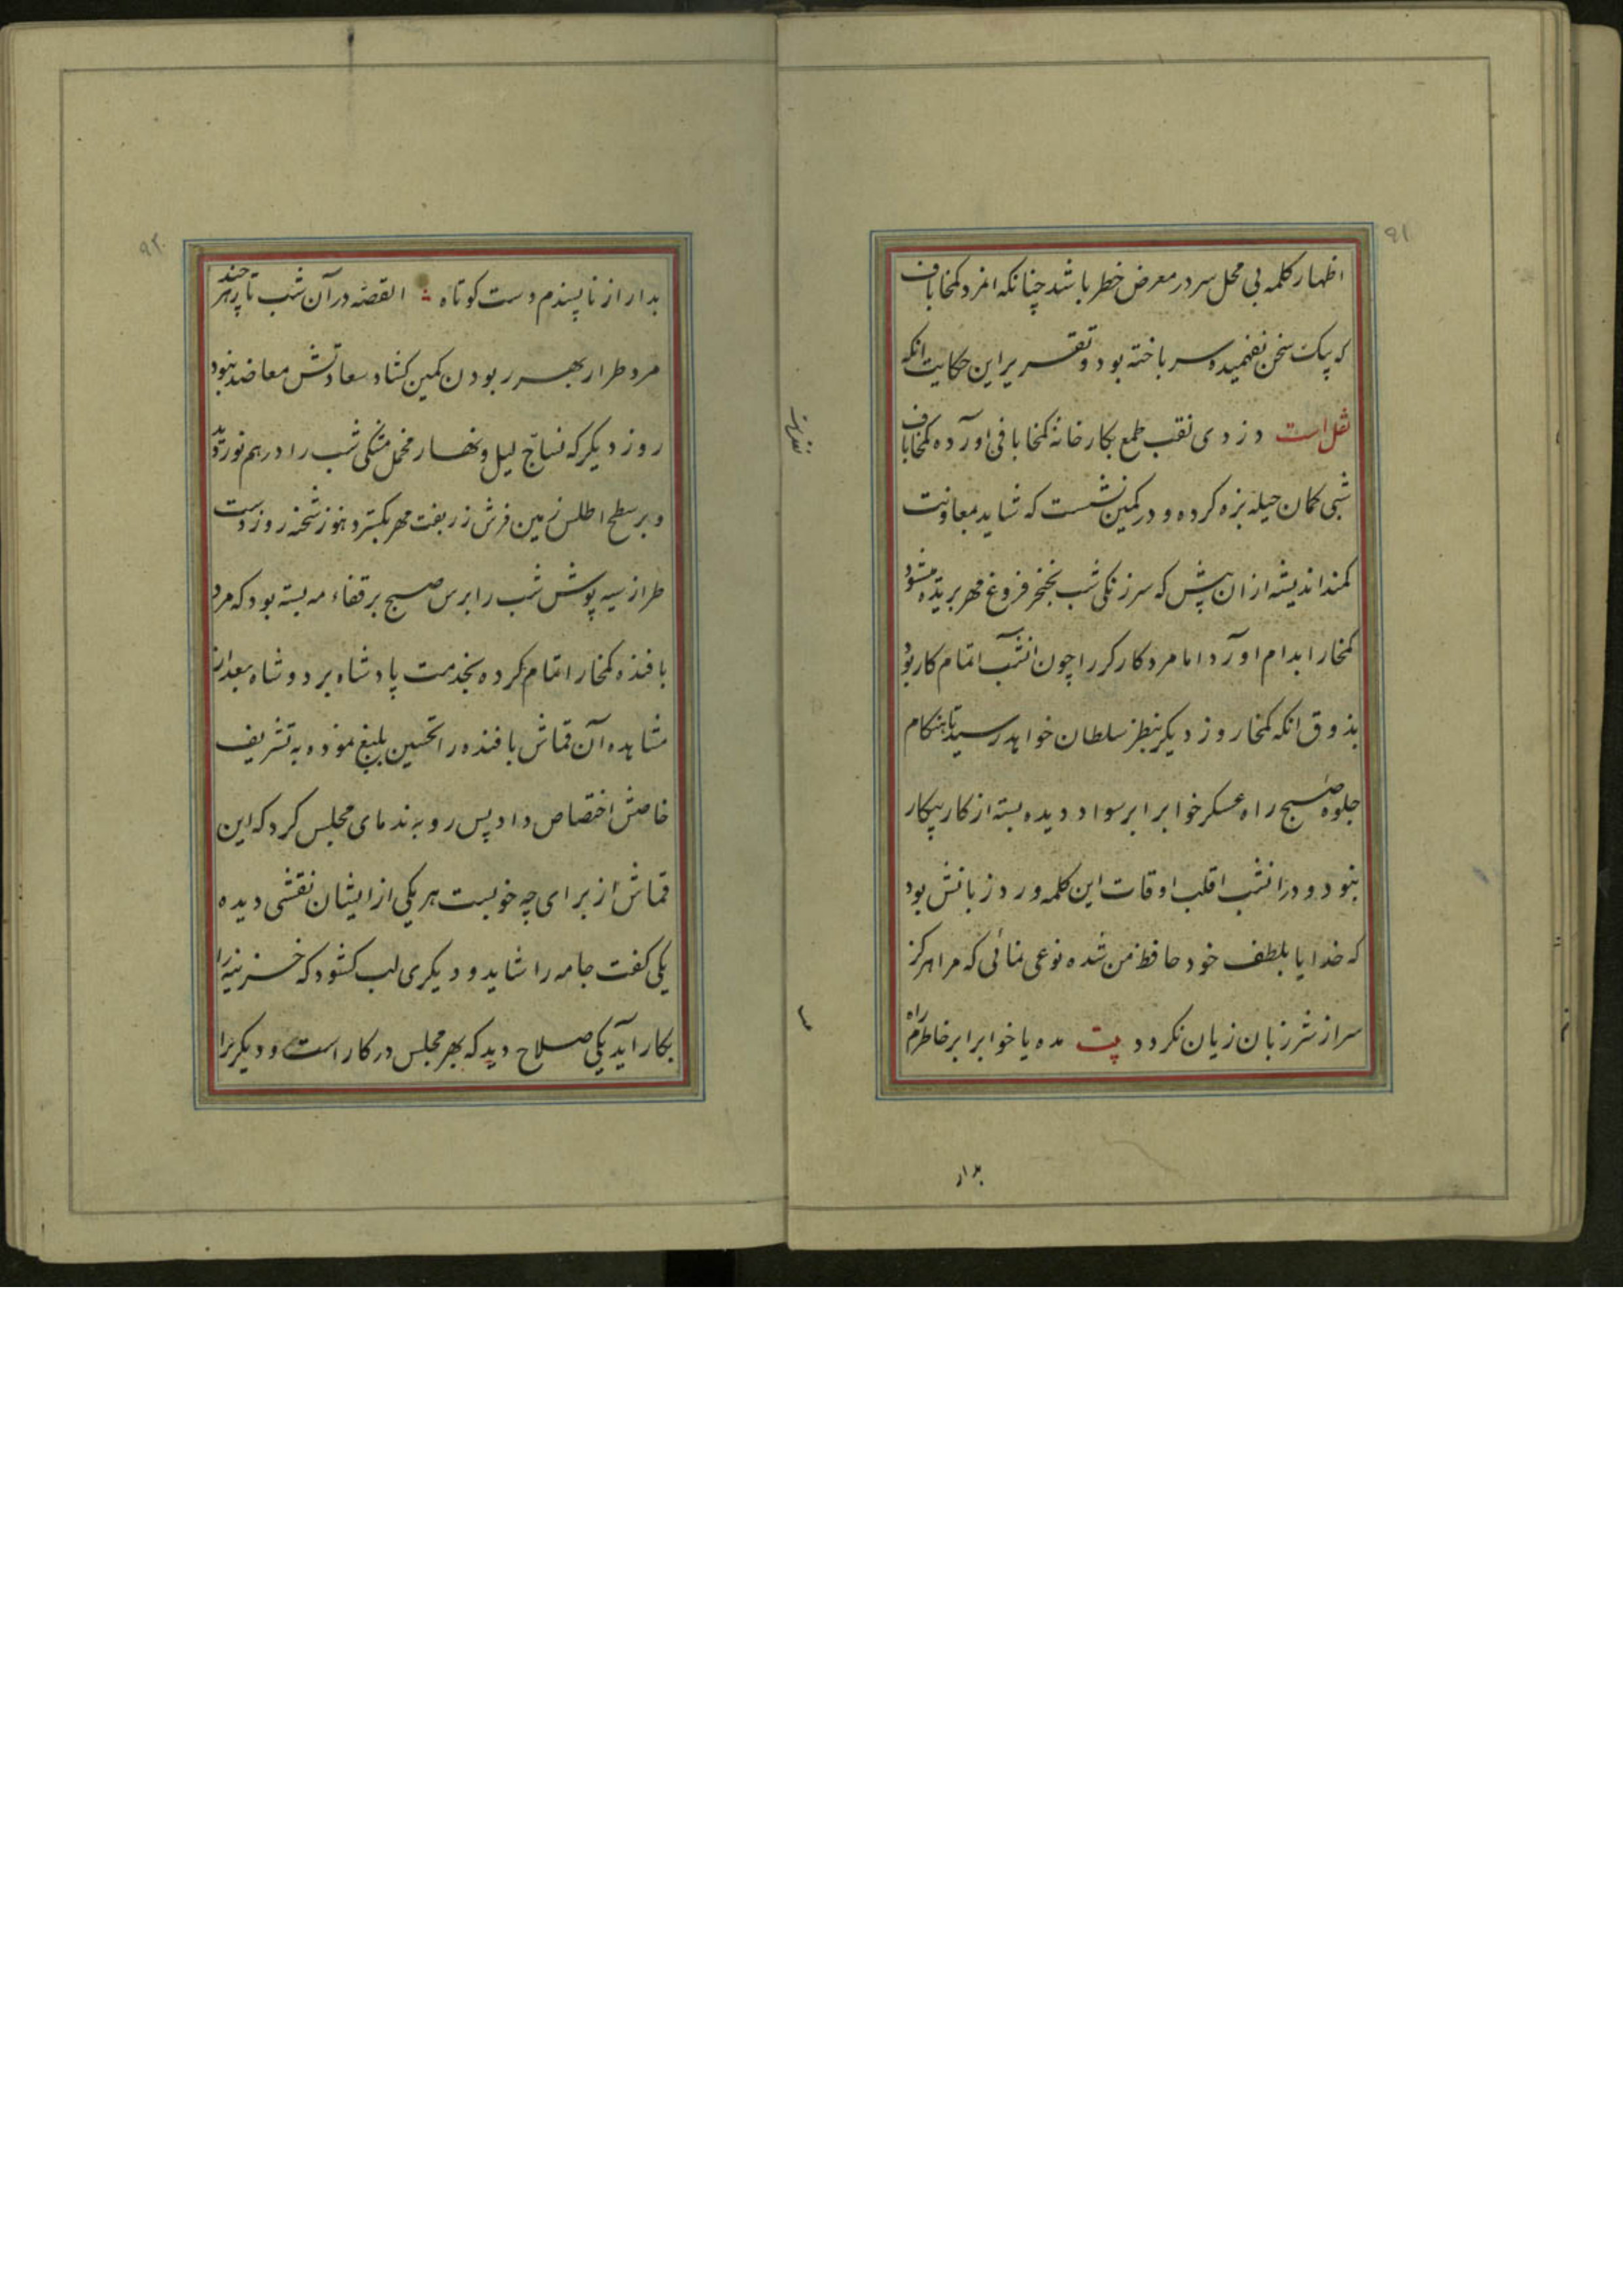 ۹۱
اظهار کلمه بی محل سر در معرض خطر باشد چنانکه انمرد کمخاباف
که بیک سخن نفهمیده سر باخته بود و تقریر این حکایت انکه
نقل است دزدی نقب طمع بکارخانه کمخابافی اورده کمخاباف
شبی کمان حیله بزه کرده و در کمین نشست که شاید بمعاونت
کمند اندیشه ازان پیش که سر زنکی شب بخنجر فروغ مهر بریده میشود
کمخا را بدام اورد اما مرد کارکر را چون انشب اتمام کار بود
بذوق انکه کمخا روز دیکر بنظر سلطان خواهد رسید تا بهنکام
جلوه صبح راه عسکر خواب را بر سواد دیده بسته از کار بیکار
نبود و در انشب اقلب اوقات این کلمه ورد زبانش بود
که خدایا بلطف خود حافظ من شده نوعی نمائی که مرا هرکز
سر از شر زبان زیان نکردد بیت مده یا خواب را بر خاطرم راه
بدار
۹۲
بدار از ناپسندم دست کوتاه القصه در آن شب تا هر چند
مرد طرار بهر ربودن کمین کشاد سعادتش معاضد نبود
روز دیکر که نساج لیل و نهار مخمل مشکی شب را درهم نوردید
و بر سطح اطلس زمین فرش زربفت مهر بکسترد هنوز شحنه روز دست
طرار سیه پوش شب را برس صبح بر قفاء مه بسته بود که مرد
بافنده کمخا را اتمام کرده بخدمت پادشاه برد و شاه بعد از
مشاهده آن قماش بافنده را تحسین بلیغ نموده به تشریف
خاصش اختصاص داد پس رو به ندمای مجلس کرد که این
قماش از برای چه خوبست هر یکی از ایشان نقشی دیده
یکی کفت جامه را شاید و دیکری لب کشود که خزینه را
بکار آید یکی صلاح دید که بهر مجلس در کار است و دیکر را